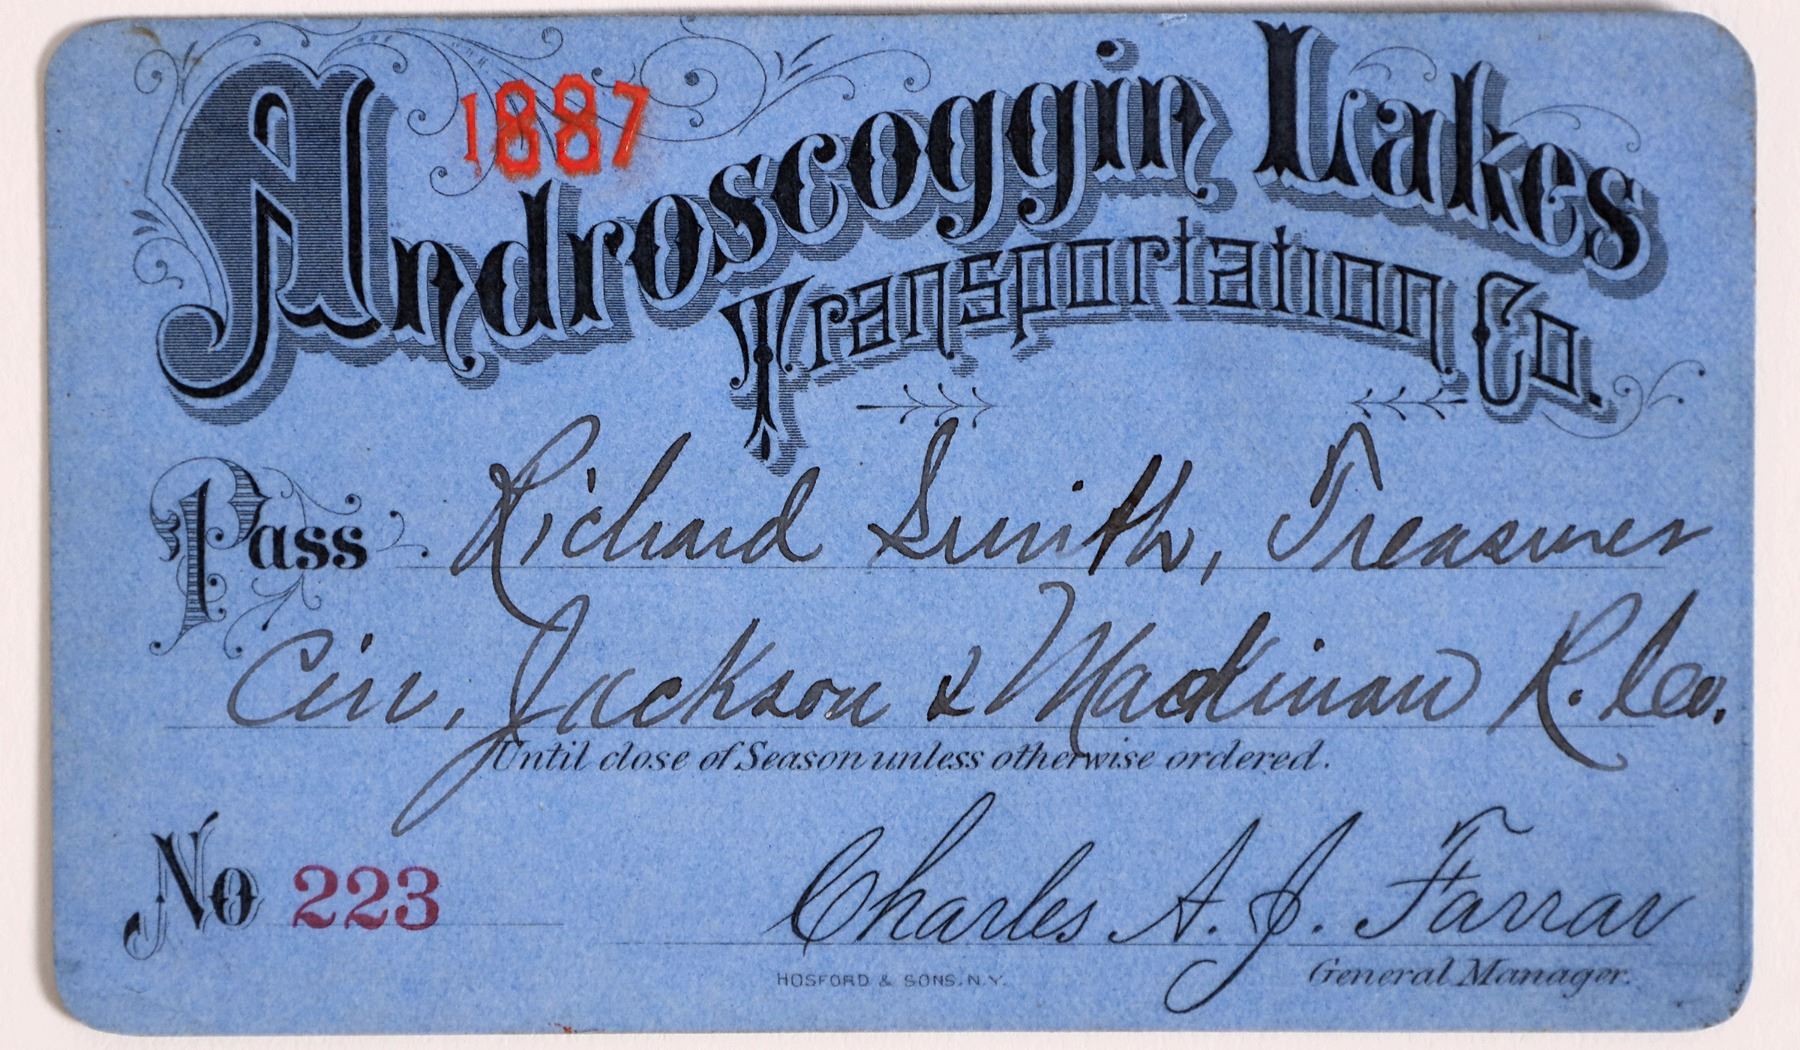 1887
Androscoggin Lakes
Transportation Co.
Pass Richard Smith, Treasurer
Cin, Jackson & Mackinaw R. Co.
Until close of Season unless otherwise ordered.
No 223
Charles A. J. Farrar
HOSFORD & SONS. N.Y.
General Manager.